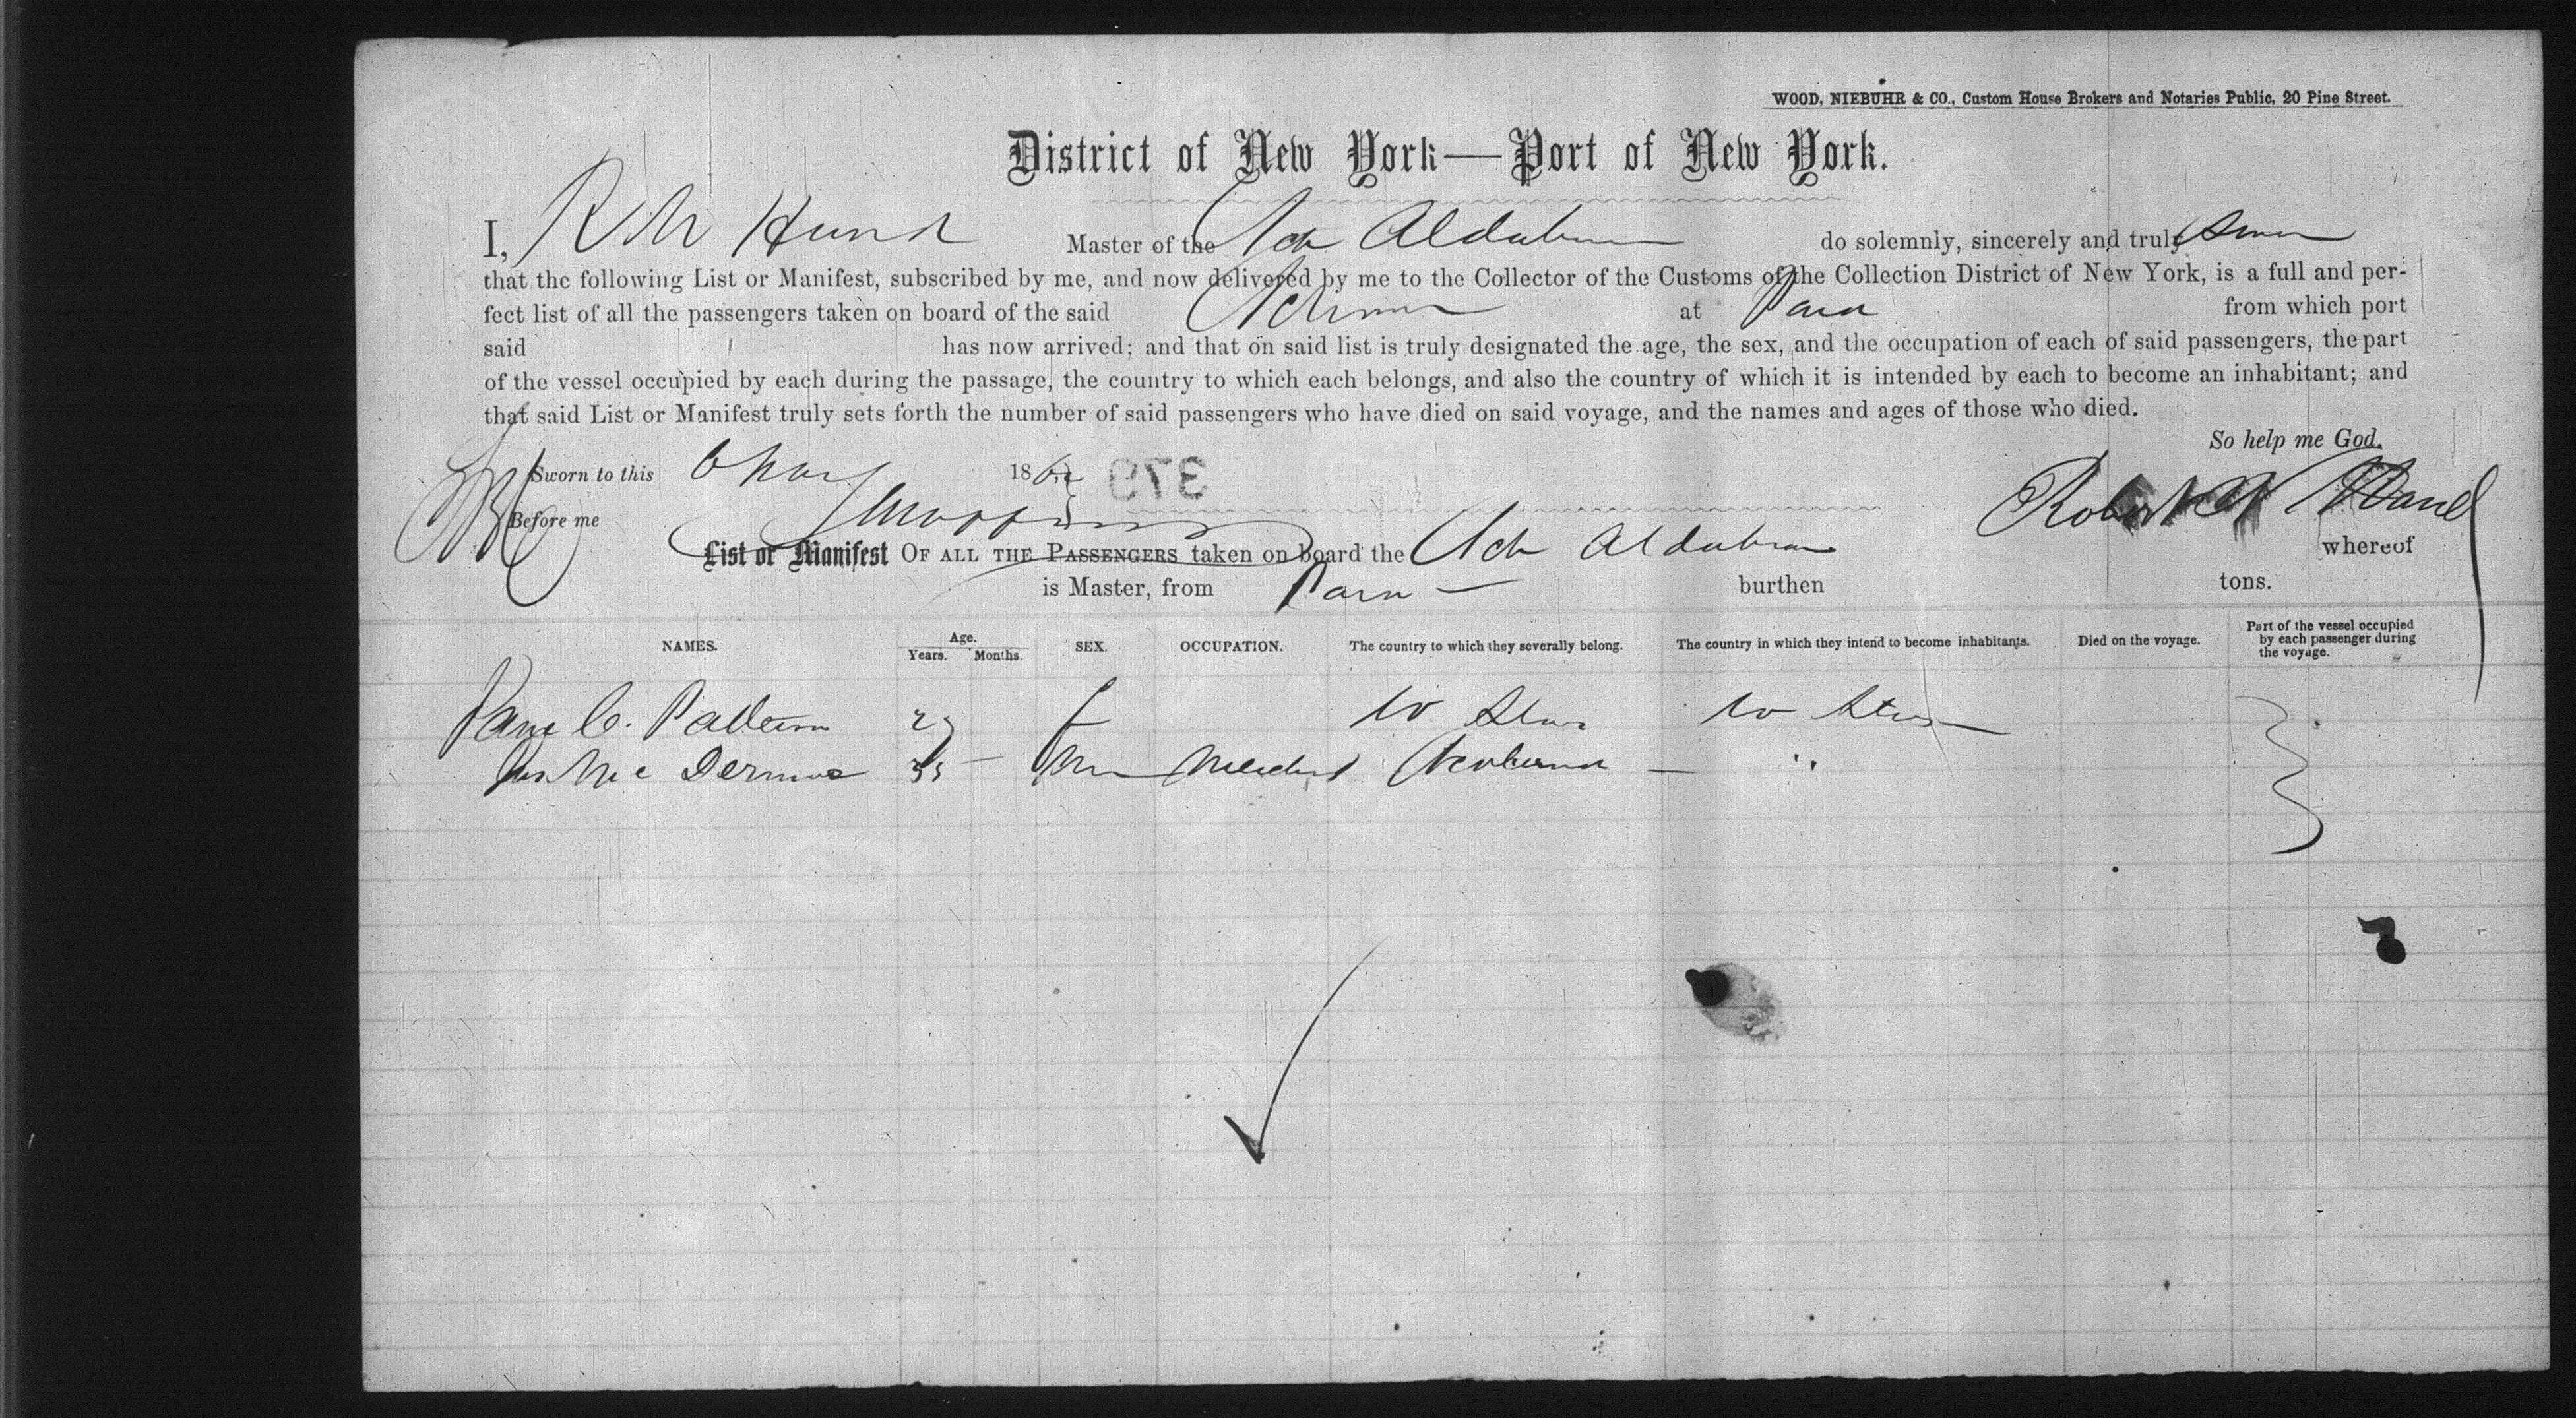 WOOD, NIEBUHR & CO., Custom House Brokers and Notaries Public, 20 Pine Street.
District of New York—Port of New York.
I, Master of the Sch do solemnly, sincerely and truly
that the following List or Manifest, subscribed by me, and now delivered by me to the Collector of the Customs of the Collection District of New York, is a full and per-
fect list of all the passengers taken on board of the said at Para from which port
said has now arrived; and that on said list is truly designated the age, the sex, and the occupation of each of said passengers, the part
of the vessel occupied by each during the passage, the country to which each belongs, and also the country of which it is intended by each to become an inhabitant; and
that said List or Manifest truly sets forth the number of said passengers who have died on said voyage, and the names and ages of those who died.
So help me God.
Sworn to this 6 May 186
379
Before me
Robert
List or Manifest OF ALL THE PASSENGERS taken on board the Sch whereof
is Master, from Para burthen tons.
NAMES. Age. Years. Months. SEX. OCCUPATION. The country to which they severally belong. The country in which they intend to become inhabitants. Died on the voyage. Part of the vessel occupied by each passenger during the voyage.
C. Patterson f
Mc 35 "